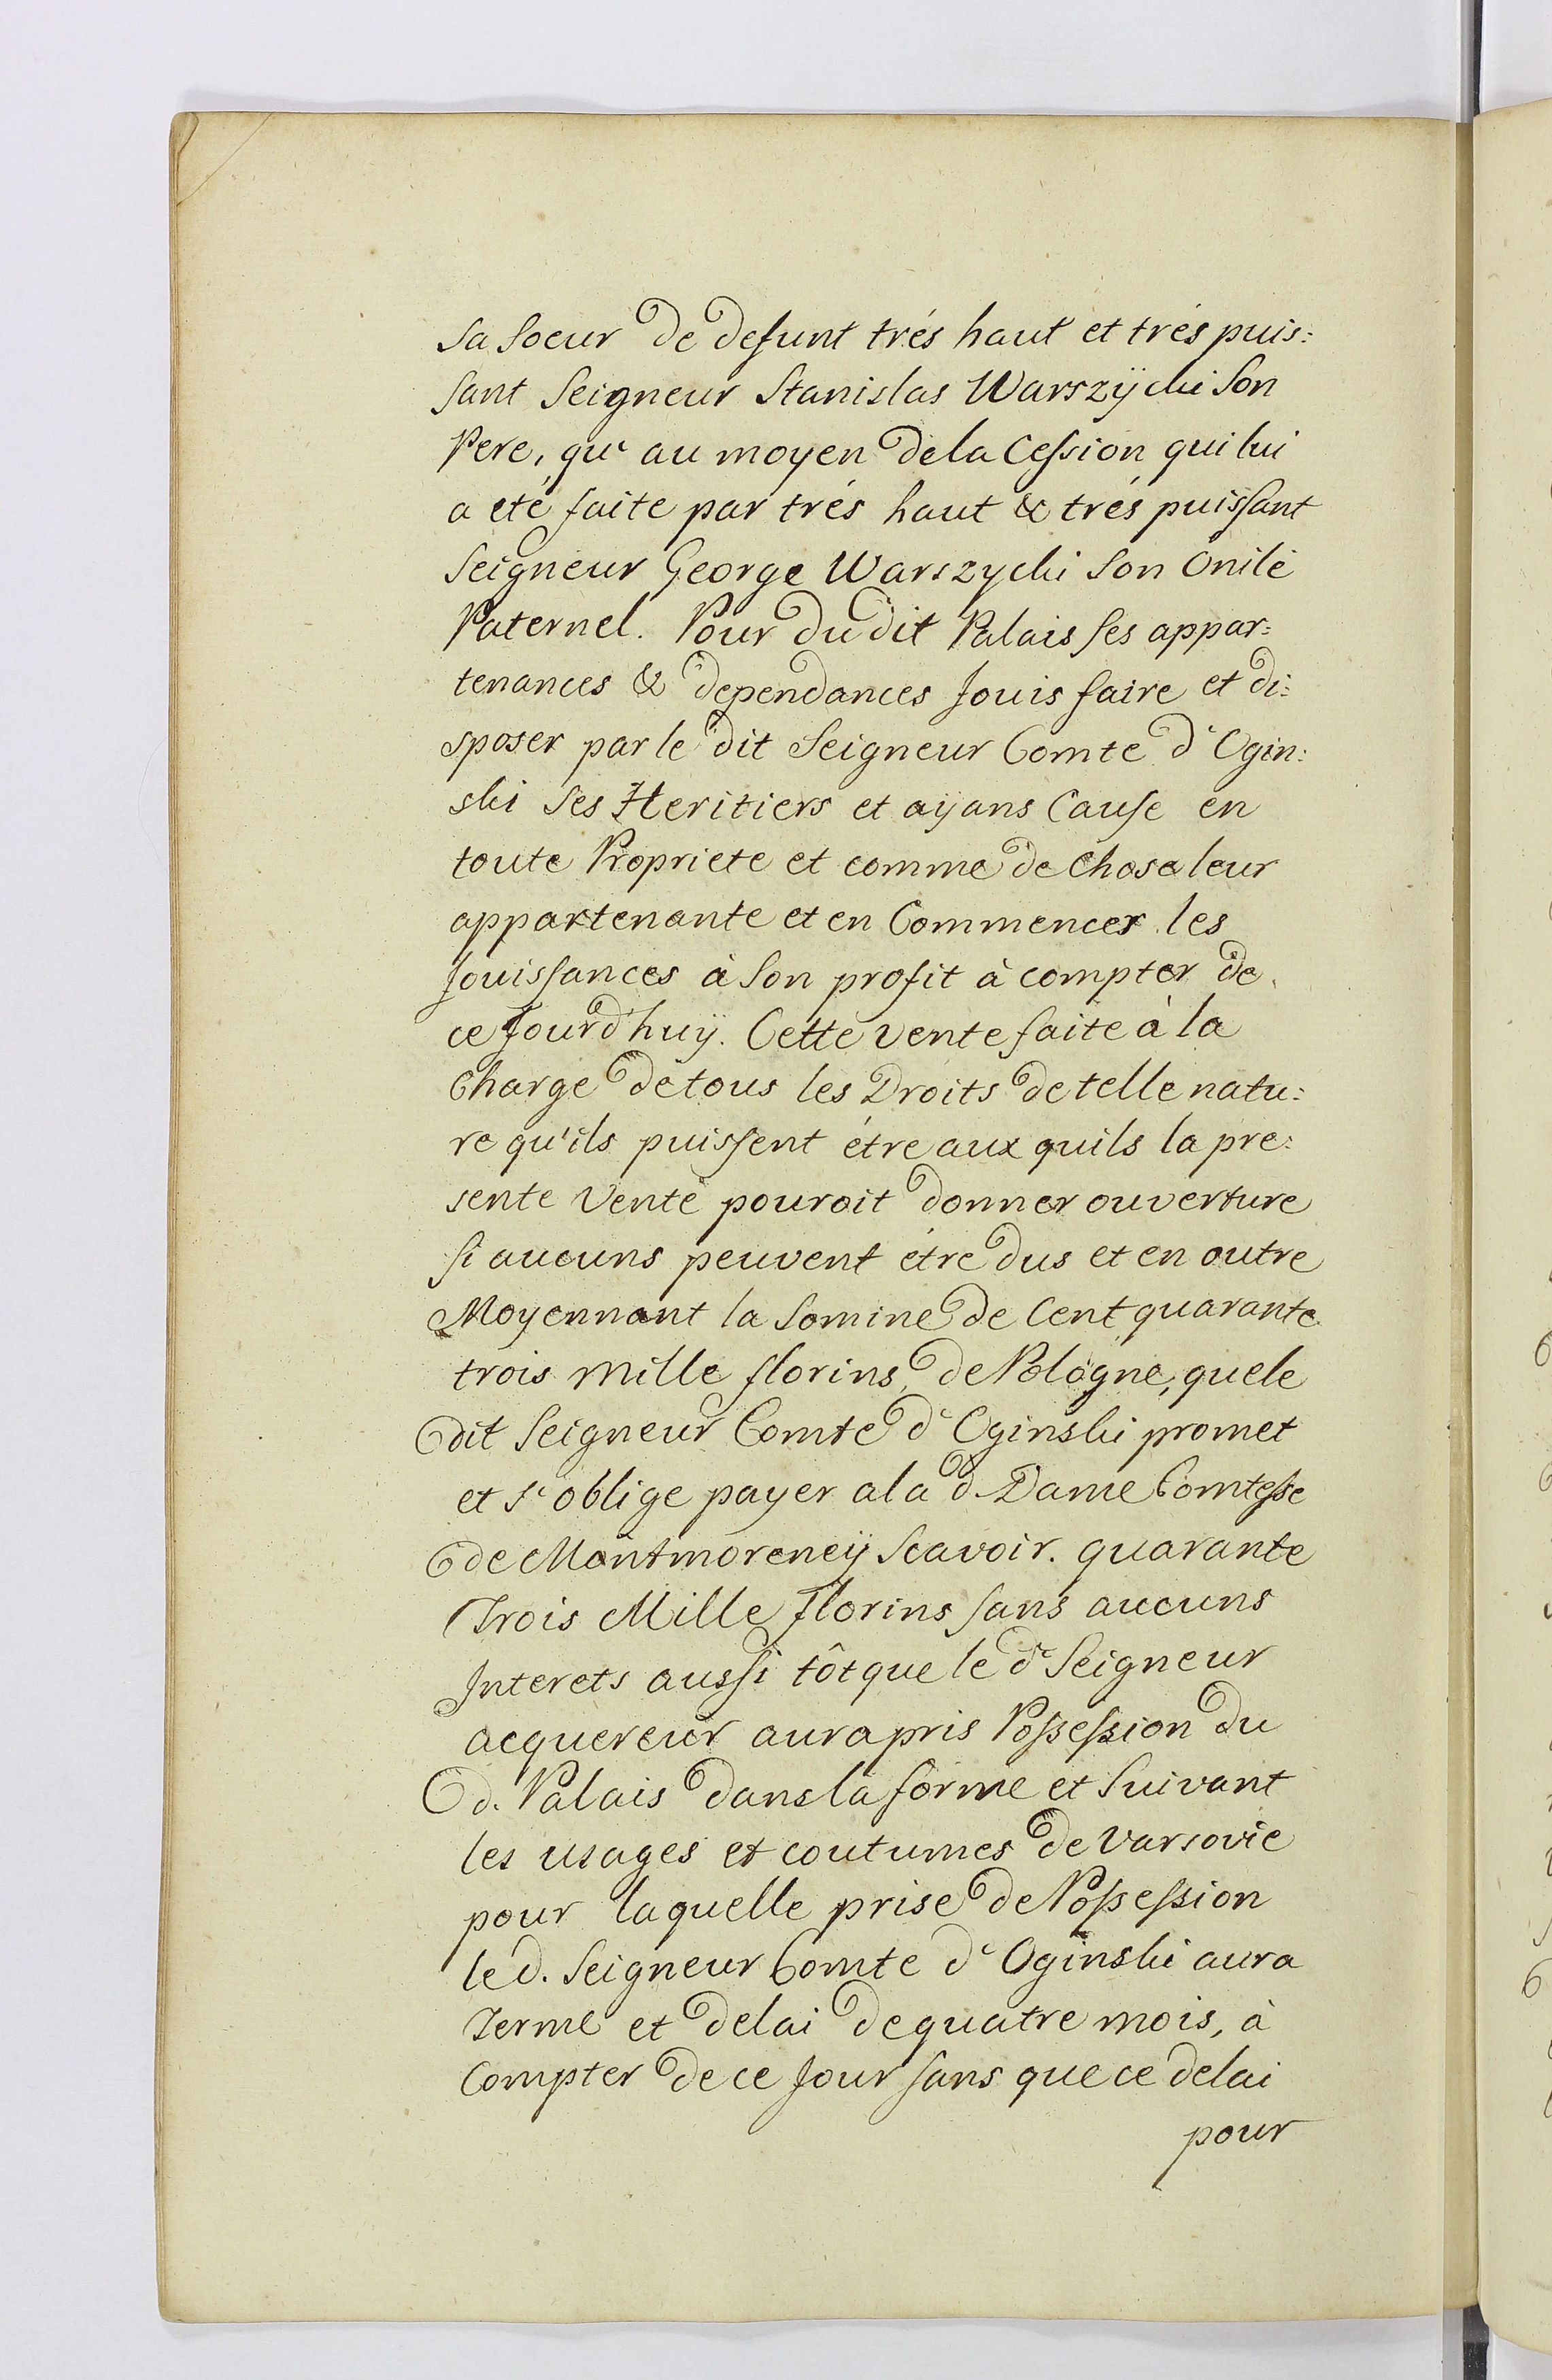 sa soeur de defunt trés haut et trés puis:
sant Seigneur Stanislas Warszÿcki son
Pere, qu' au moyen dela Cession qui lui
a eté faite par trés haut & trés puissant
Seigneur George Warszycki son Onilé
Paternel. Pour du dit Palais ses appar:
tenances & dependances Jouis faire et di:
sposer par le dit Seigneur Comte d' Ogin:
ski ses Heritiers et aÿans Cause en
toute Propriete et comme de Chose leur
appartenante et en Commencer les
Jouissances à son profit à compter de
ce Jourd'huÿ. Cette vente faite à la
Charge de tous les Droits de telle natu:
re qu'ils puissent étre aux quils la pre:
sente Vente pouroit donner ouverture
si aucuns peuvent étre dus et en outre
Moyennant la Somme de Cent quarante
trois mille florins de Pologne, que le
dit Seigneur Comte d' Oginski promet
et s' oblige payer a la d. Dame Comtesse
de Montmorencÿ scavoir. quarante
Trois Mille Florins sans aucuns
Interets aussi tôt que le dt Seigneur
acquereur aura pris Possession du
d. Palais dans la forme et suivant
les usages et coutumes de Varsovie
pour laquelle prise de Possession
le d. Seigneur Comte d' Oginski aura
Terme et delai de quatre mois, à
Compter de ce Jour sans que ce delai
pour